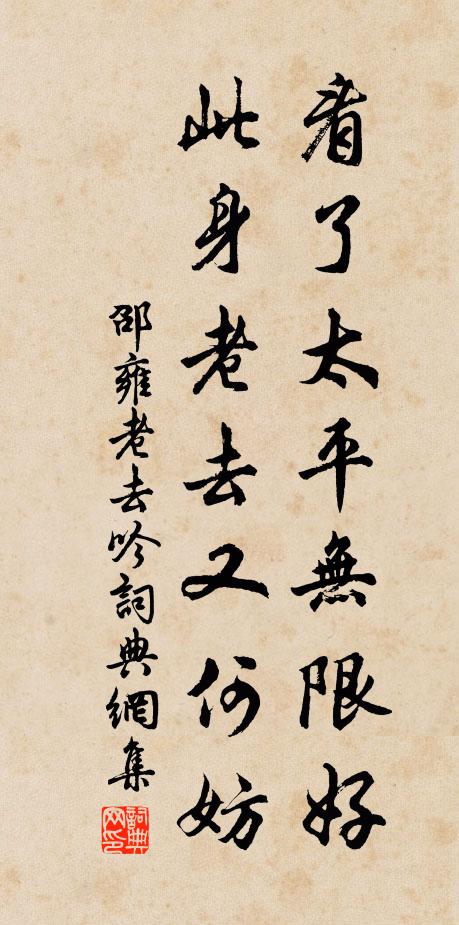 看了太平無限好
此身老去又何妨
邵雍老去吟詞典網集
詞典网印